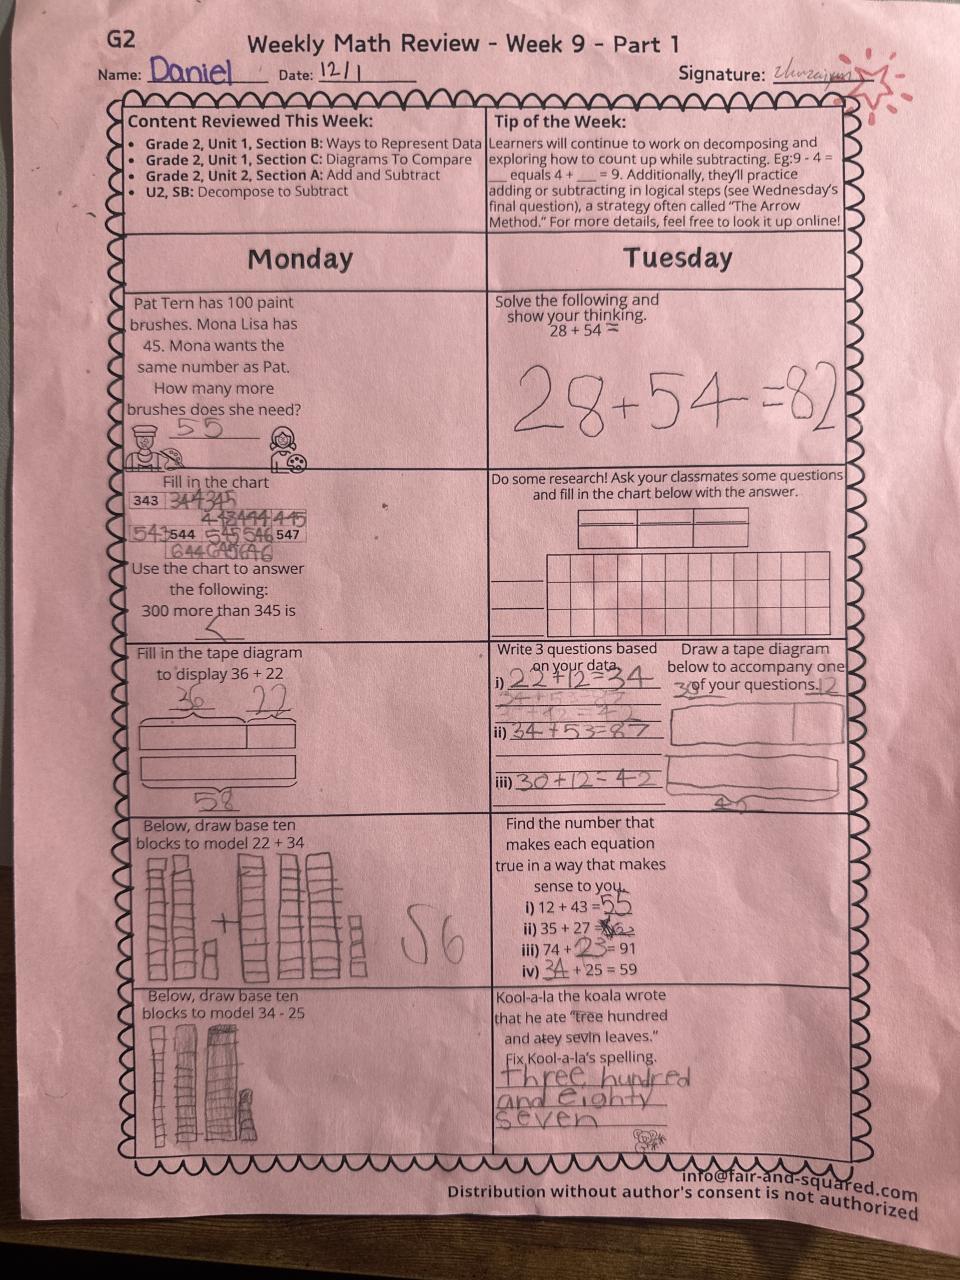 G2
Weekly Math Review - Week 9 - Part 1
Name: Daniel Date: 12/1
Signature:
Content Reviewed This Week:
• Grade 2, Unit 1, Section B: Ways to Represent Data
• Grade 2, Unit 1, Section C: Diagrams To Compare
• Grade 2, Unit 2, Section A: Add and Subtract
• U2, SB: Decompose to Subtract
Tip of the Week:
Learners will continue to work on decomposing and
exploring how to count up while subtracting. Eg:9 - 4 =
__ equals 4 + __ = 9. Additionally, they'll practice
adding or subtracting in logical steps (see Wednesday's
final question), a strategy often called "The Arrow
Method." For more details, feel free to look it up online!
Monday
Pat Tern has 100 paint
brushes. Mona Lisa has
45. Mona wants the
same number as Pat.
How many more
brushes does she need?
55
Fill in the chart
343 344 345
443 444 445
543 544 545 546 547
644 645 646
Use the chart to answer
the following:
300 more than 345 is
Fill in the tape diagram
to display 36 + 22
36 22
58
Below, draw base ten
blocks to model 22 + 34
+ 56
Below, draw base ten
blocks to model 34 - 25
Tuesday
Solve the following and
show your thinking.
28 + 54 =
28+54=82
Do some research! Ask your classmates some questions
and fill in the chart below with the answer.
Write 3 questions based
on your data.
i) 22+12=34
ii) 34+53=87
iii) 30+12=42
Draw a tape diagram
below to accompany one
of your questions.
30 12
Find the number that
makes each equation
true in a way that makes
sense to you.
i) 12 + 43 = 55
ii) 35 + 27 = 62
iii) 74 + 23 = 91
iv) 34 + 25 = 59
Kool-a-la the koala wrote
that he ate "tree hundred
and atey sevin leaves."
Fix Kool-a-la's spelling.
Three hundred
and eighty
seven
info@fair-and-squared.com
Distribution without author's consent is not authorized